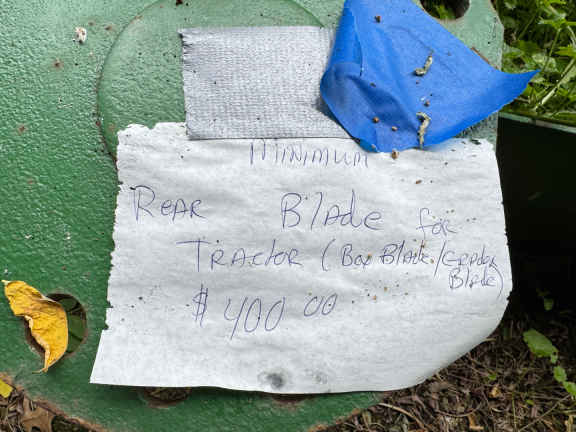 Minimum
Rear Blade for
Tractor (Box Blade/Grader
Blade)
$400.00